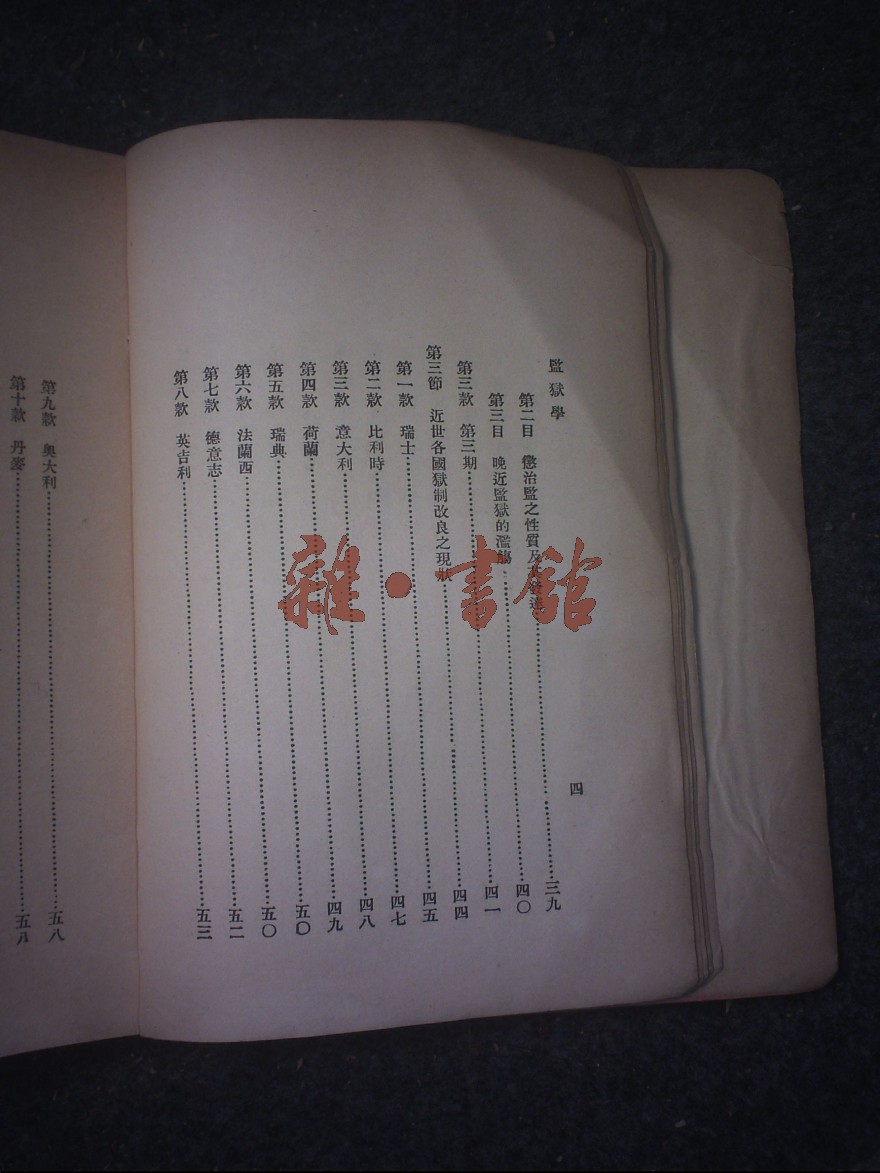 監獄學 四
第二目 懲治監之性質及 三九
第三目 晚近監獄的濫觴 四〇
第三款 第三期 四一
第三節 近世各國獄制改良之現狀 四四
第一款 瑞士 四五
第二款 比利時 四七
第三款 意大利 四八
第四款 荷蘭 四九
第五款 瑞典 五〇
第六款 法蘭西 五〇
第七款 德意志 五二
第八款 英吉利 五三
第九款 奧大利 五八
第十款 丹麥 五八
雜·書館